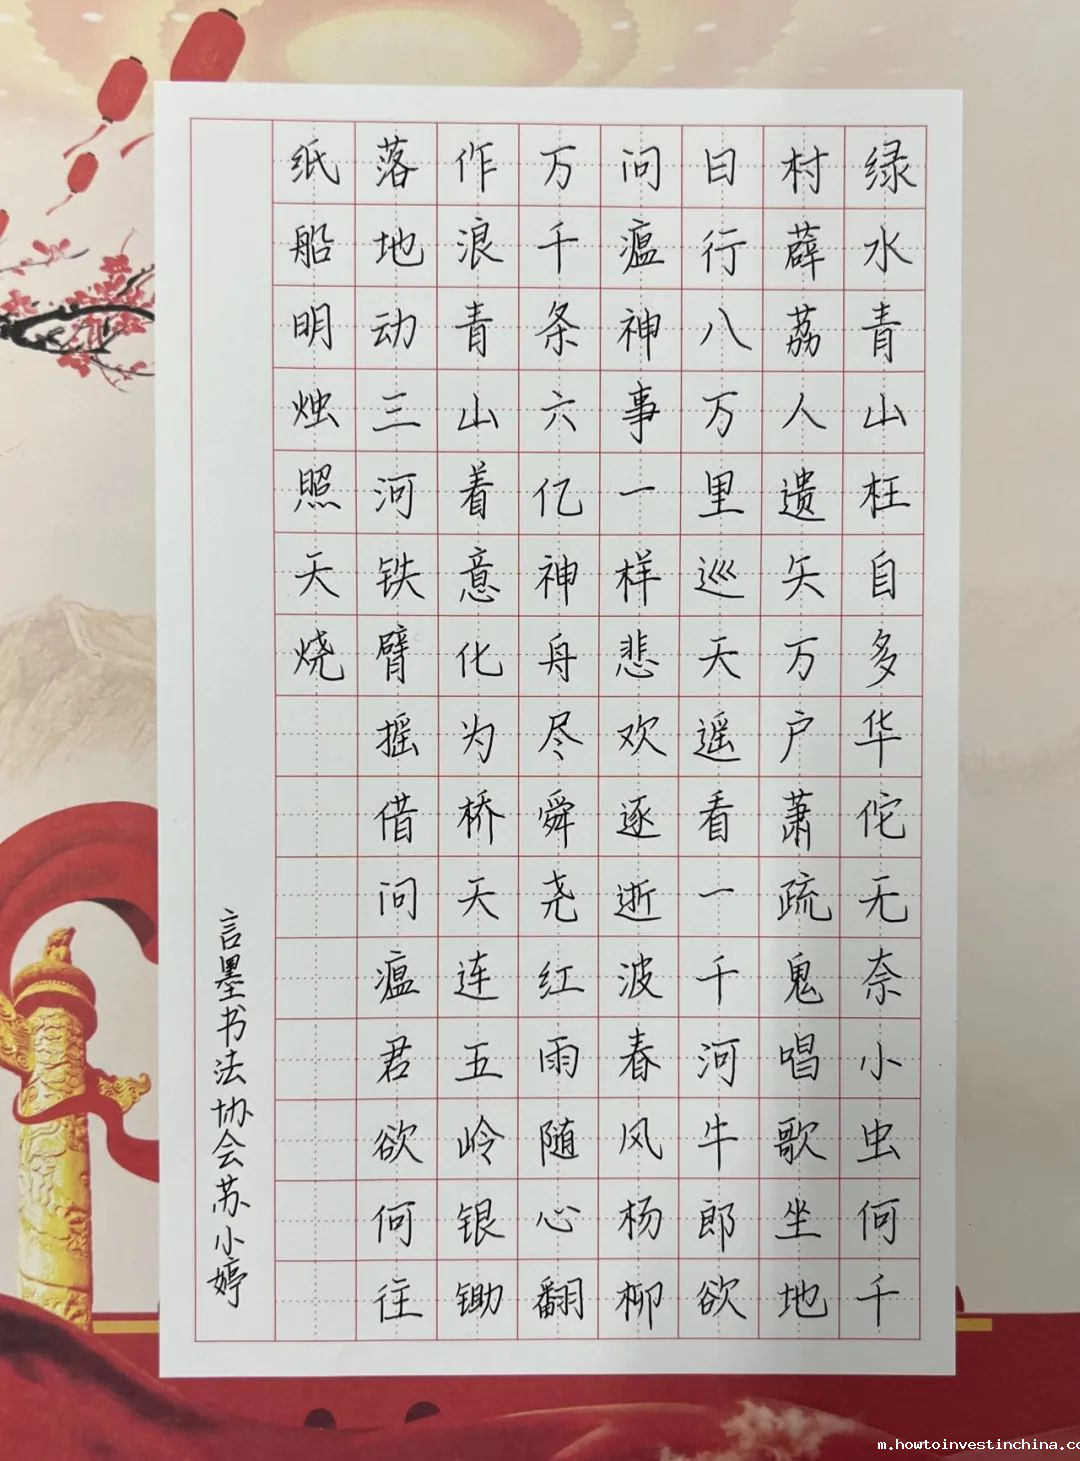 绿水青山枉自多华佗无奈小虫何千
村薜荔人遗矢万户萧疏鬼唱歌坐地
日行八万里巡天遥看一千河牛郎欲
问瘟神事一样悲欢逐逝波春风杨柳
万千条六亿神舟尽舜尧红雨随心翻
作浪青山着意化为桥天连五岭银锄
落地动三河铁臂摇借问瘟君欲何往
纸船明烛照天烧
言墨书法协会苏小婷
m.howtoinvestinchina.co